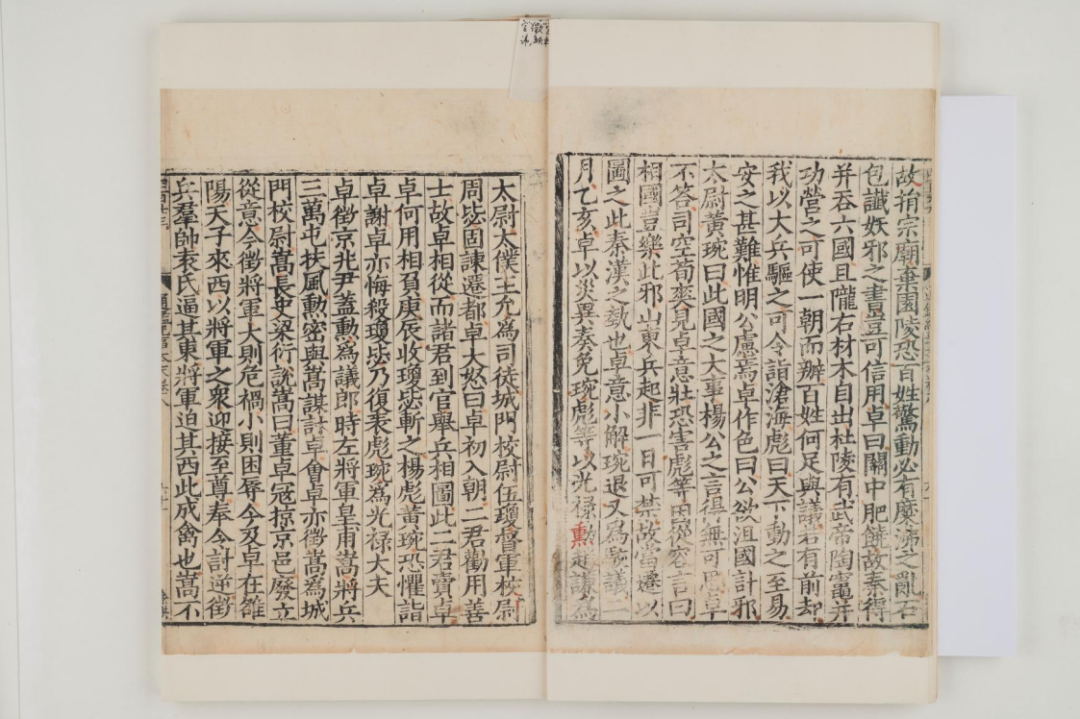 故捐宗廟棄園陵恐百姓驚動必有麋沸之亂石
包讖妖邪之書豈可信用卓曰關中肥饒故秦得
并吞六國且隴右材木自出杜陵有武帝陶竈并
功營之可使一朝而辦百姓何足與議若有前却
我以大兵驅之可令詣滄海彪曰天下動之至易
安之甚難惟明公慮焉卓作色曰公欲沮國計邪
太尉黃琬曰此國之大事楊公之言得無可思卓
不答司空荀爽見卓意壯恐害彪等因從容言曰
相國豈樂此邪山東兵起非一日可禁故當遷以
圖之此秦漢之埶也卓意小解琬退又為駮議二
月乙亥卓以災異奏免琬彪等以光祿勳趙謙為
太尉太僕王允為司徒城門校尉伍瓊督軍校尉
周毖固諫遷都卓大怒曰卓初入朝二君勸用善
士故卓相從而諸君到官舉兵相圖此二君賣卓
卓何用相負庚辰收瓊毖斬之楊彪黃琬恐懼詣
卓謝卓亦悔殺瓊毖乃復表彪琬為光祿大夫
卓徵京兆尹蓋勳為議郎時左將軍皇甫嵩將兵
三萬屯扶風勳密與嵩謀討卓會卓亦徵嵩為城
門校尉嵩長史梁衍說嵩曰董卓寇掠京邑廢立
從意今徵將軍大則危禍小則困辱今及卓在雒
陽天子來西以將軍之衆迎接至尊奉令討逆徵
兵羣帥袁氏逼其東將軍迫其西此成禽也嵩不